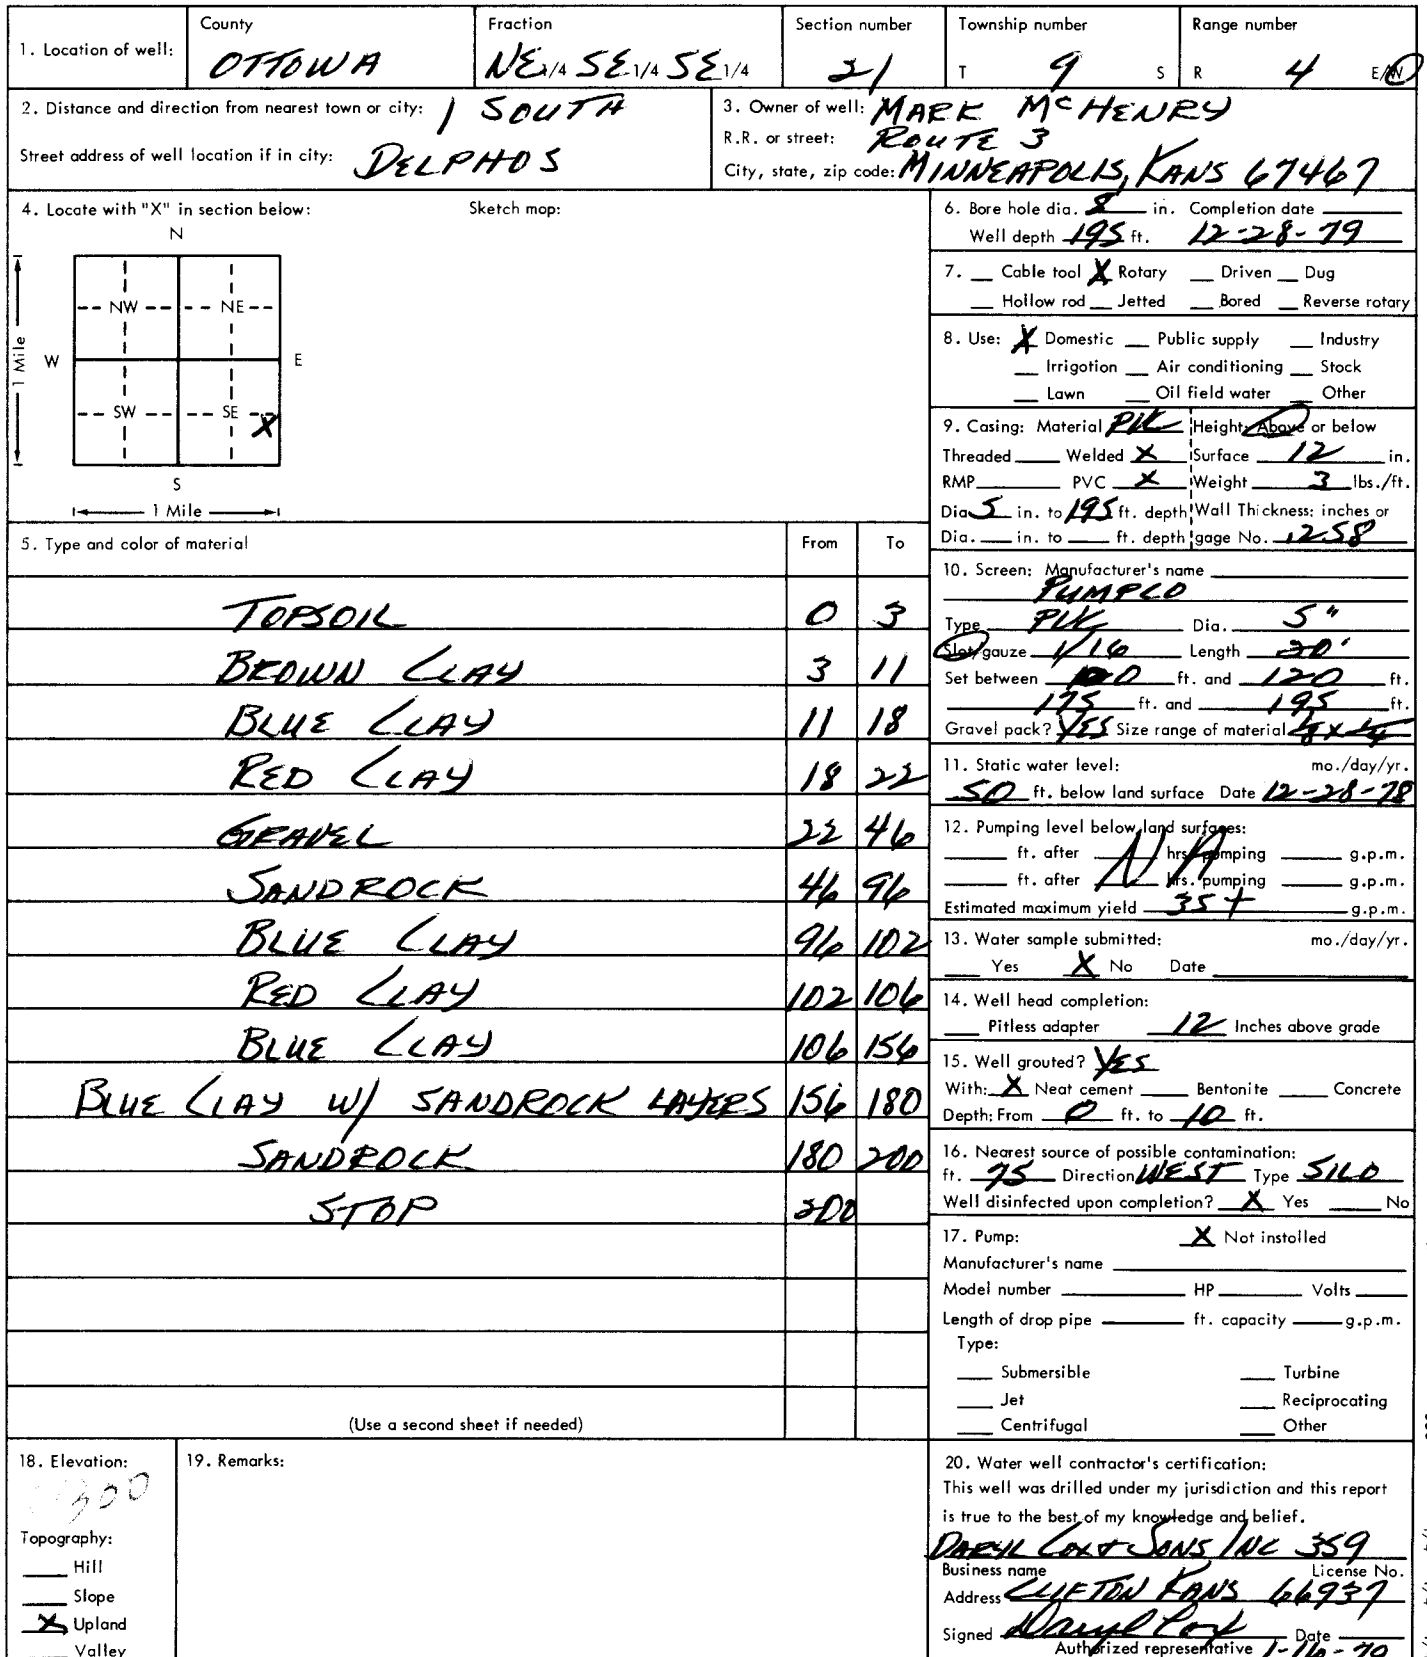 1. Location of well: County OTTOWA Fraction NE 1/4 SE 1/4 SE 1/4 Section number 21 Township number T 9 S Range number R 4 E/W
2. Distance and direction from nearest town or city: 1 SOUTH
Street address of well location if in city: DELPHOS
3. Owner of well: MARK McHENRY
R.R. or street: ROUTE 3
City, state, zip code: MINNEAPOLIS, KANS 67467
4. Locate with "X" in section below: Sketch map:
N
NW NE
W E
1 Mile
SW SE X
S
1 Mile
5. Type and color of material From To
TOPSOIL 0 3
BROWN CLAY 3 11
BLUE CLAY 11 18
RED CLAY 18 22
GRAVEL 22 46
SANDROCK 46 96
BLUE CLAY 96 102
RED CLAY 102 106
BLUE CLAY 106 156
BLUE CLAY W/ SANDROCK LAYERS 156 180
SANDROCK 180 200
STOP 200
(Use a second sheet if needed)
6. Bore hole dia. 8 in. Completion date
Well depth 195 ft. 12-28-79
7. Cable tool X Rotary Driven Dug
Hollow rod Jetted Bored Reverse rotary
8. Use: X Domestic Public supply Industry
Irrigation Air conditioning Stock
Lawn Oil field water Other
9. Casing: Material PVC Height: Above or below
Threaded Welded X Surface 12 in.
RMP PVC X Weight 3 lbs./ft.
Dia 5 in. to 195 ft. depth Wall Thickness: inches or
Dia. in. to ft. depth gage No. .258
10. Screen: Manufacturer's name
PUMPCO
Type PVC Dia. 5"
Slot/gauze 1/16 Length 20'
Set between ft. and 120 ft.
175 ft. and 195 ft.
Gravel pack? YES Size range of material 1/8 x 1/4
11. Static water level: mo./day/yr.
50 ft. below land surface Date 12-28-78
12. Pumping level below land surfaces:
ft. after hrs. pumping g.p.m.
NA
ft. after hrs. pumping g.p.m.
Estimated maximum yield 35+ g.p.m.
13. Water sample submitted: mo./day/yr.
Yes X No Date
14. Well head completion:
Pitless adapter 12 Inches above grade
15. Well grouted? YES
With: X Neat cement Bentonite Concrete
Depth: From 0 ft. to 10 ft.
16. Nearest source of possible contamination:
ft. 75 Direction WEST Type SILO
Well disinfected upon completion? X Yes No
17. Pump: X Not installed
Manufacturer's name
Model number HP Volts
Length of drop pipe ft. capacity g.p.m.
Type:
Submersible Turbine
Jet Reciprocating
Centrifugal Other
18. Elevation:
1300
Topography:
Hill
Slope
X Upland
Valley
19. Remarks:
20. Water well contractor's certification:
This well was drilled under my jurisdiction and this report
is true to the best of my knowledge and belief.
DARYL COX & SONS INC 359
Business name License No.
Address CLIFTON KANS 66937
Signed Daryl Cox Date
Authorized representative 1-16-79